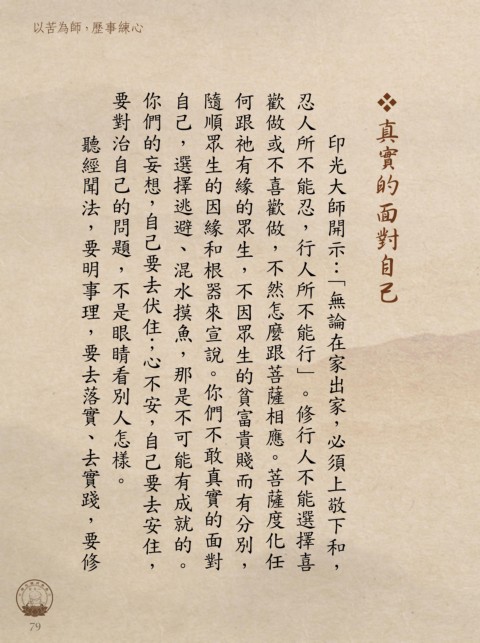 以苦為師，歷事練心
❖真實的面對自己
印光大師開示：「無論在家出家，必須上敬下和，
忍人所不能忍，行人所不能行」。修行人不能選擇喜
歡做或不喜歡做，不然怎麼跟菩薩相應。菩薩度化任
何跟祂有緣的眾生，不因眾生的貧富貴賤而有分別，
隨順眾生的因緣和根器來宣說。你們不敢真實的面對
自己，選擇逃避、混水摸魚，那是不可能有成就的。
你們的妄想，自己要去伏住；心不安，自己要去安住，
要對治自己的問題，不是眼睛看別人怎樣。
聽經聞法，要明事理，要去落實、去實踐，要修
79